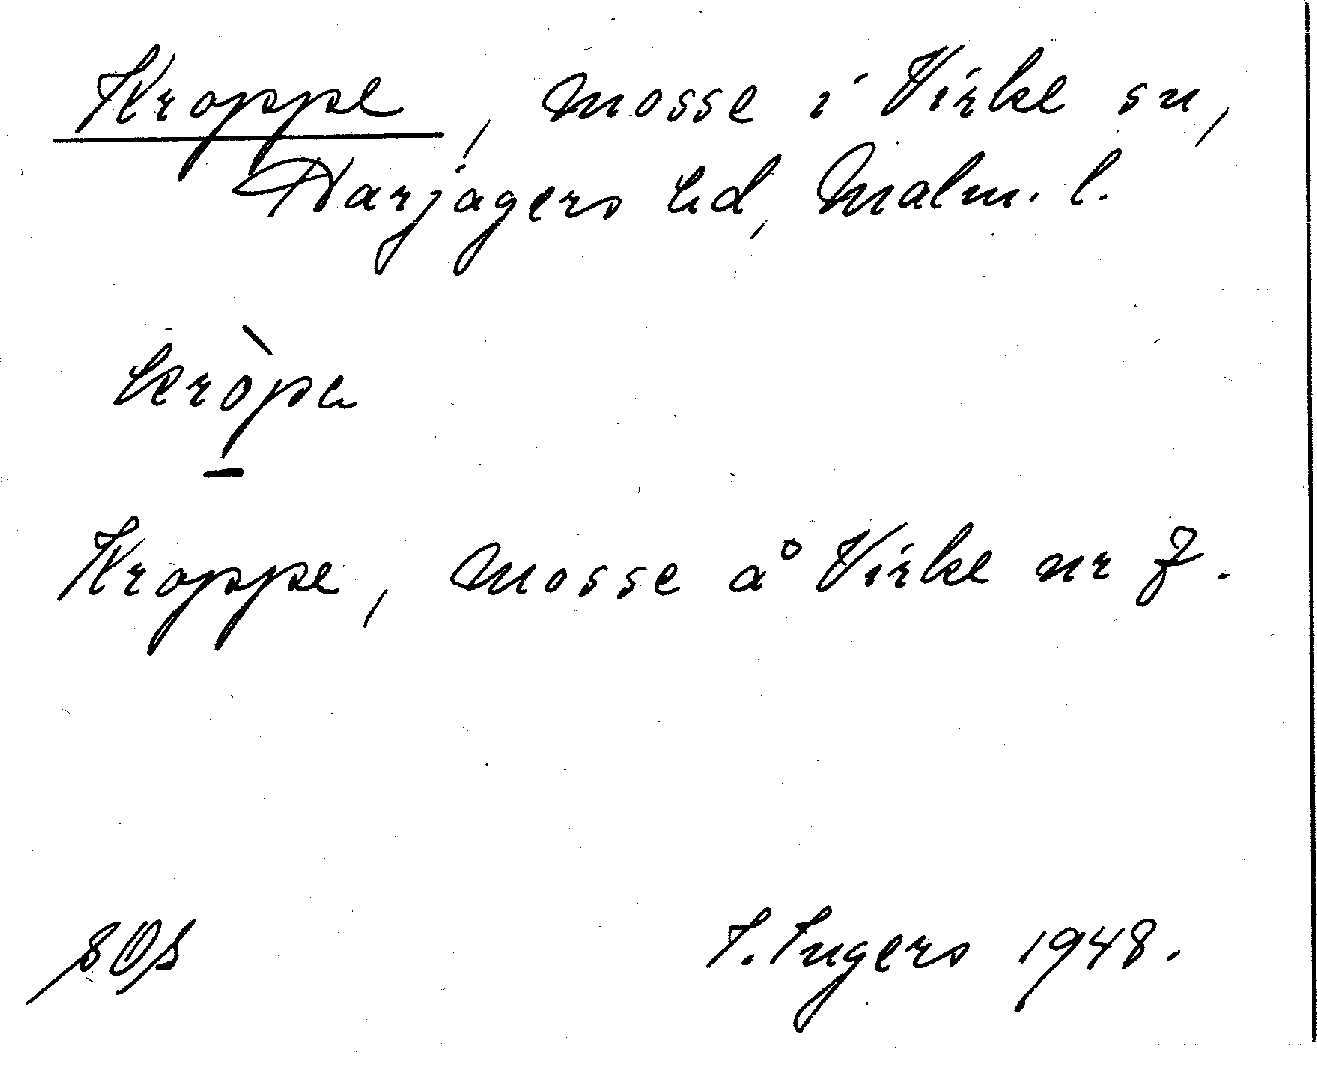 Kroppe, mosse i Virke sn,
Harjagers hd, Malm. l.
kròpa
Kroppe, mosse å Virke nr 7.
I. Ingers 1948.